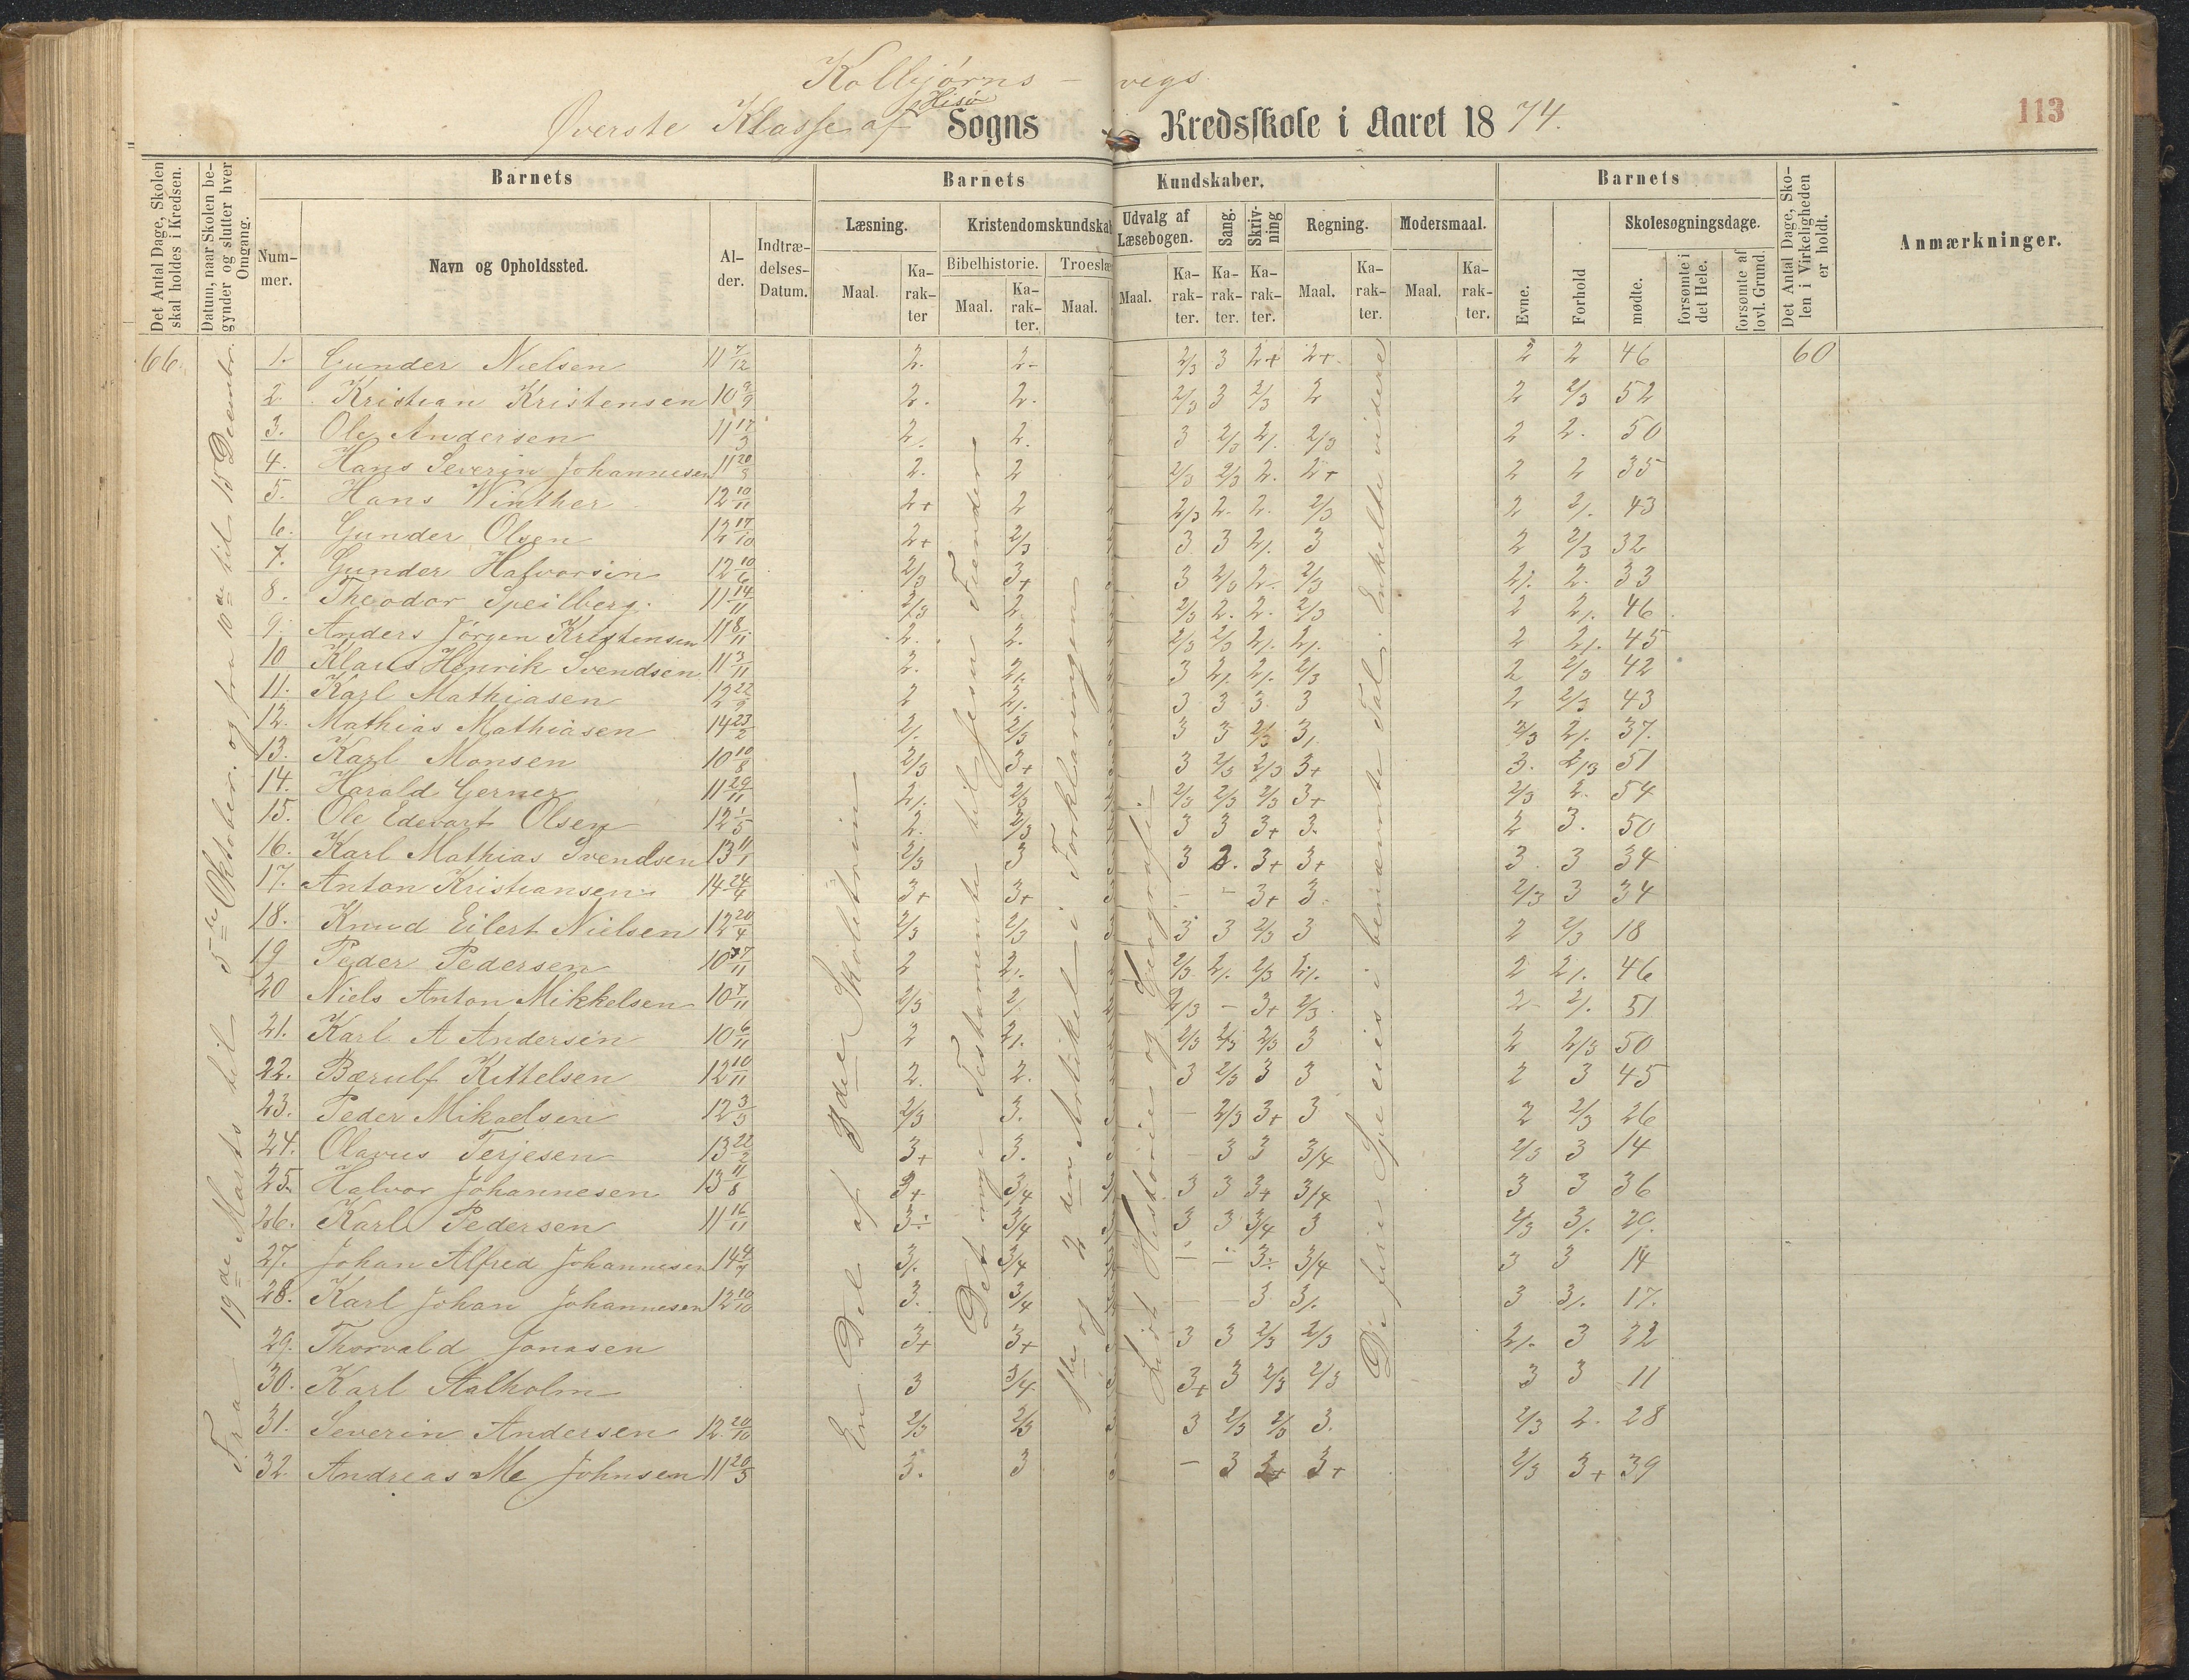 Kolbjørns - vegs
Øverste Klasse af Hisø Sogns Kredsskole i Aaret 1874.
113
Det Antal Dage, Skolen skal holdes i Kredsen.
Datum, naar Skolen begynder og slutter hver Omgang.
Barnets
Barnets Kundskaber.
Barnets
Det Antal Dage, Skolen i Virkeligheden er holdt.
Anmærkninger.
Nummer.
Navn og Opholdssted.
Alder.
Indtrædelses-Datum.
Læsning.
Kristendomskundskab
Udvalg af Læsebogen.
Sang.
Skrivning
Regning.
Modersmaal.
Evne.
Forhold
Skolesøgningsdage.
Bibelhistorie.
Troeslæ
Maal. Karakter
Maal. Karakter.
Maal.
Maal. Karakter.
Karakter.
Karakter.
Maal. Karakter.
Maal. Karakter.
mødte.
forsømte i det Hele.
forsømte af lovl. Grund.
66.
Fra 19de Marts til 5te Oktober. og fra 10de til 15 Decembr.
En Del af P Skoletrin
Det nye Testamente til Jesu Fiender
1ste og 2den Artikel i Forklaringen
Lidt Historie og Geografi
De fire Species i benævnte Tal. Enkelte videre
1. Gunder Nielsen 11 7/12 2. 2- 2/3 3 2+ 2+. 2 2 46 60
2. Kristian Kristensen 10 9/9 2. 2. 2/3 3 2/3 2 2 2/3 52
3. Ole Andersen 11 17/3 2. 2. 3 2/3 2/. 2/3 2 2. 50
4. Hans Severin Johannesen 11 20/9 2. 2 2/3 2/3 2. 2+ 2 2 35
5. Hans Winther 12 10/11 2+ 2 2/3 2. 2. 2/3 2 2/. 43
6. Gunder Olsen 12 17/10 2+ 2/3 3 3 2/. 3 2 2/3 32
7. Gunder Halvorsen 12 10/6 2/3 3+ 3 2/3 2- 2/3 2/. 2. 33
8. Theodor Speilberg. 11 14/11 2/3 2. 2/3 2. 2. 2/3 2 2/. 46
9. Anders Jørgen Kristensen 11 8/11 2. 2. 2/3 2/3 2/. 2/. 2 2/. 45
10 Klaus Henrik Svendsen 11 3/11 2. 2/. 3 2/. 2/. 2/3 2 2/3 42
11. Karl Mathiasen 12 22/9 2 2/. 3 3 3 3 2 2/3 43
12. Mathias Mathiasen 14 23/2 2/. 2/3 3 3 2/3 3/. 2/3 2/. 37.
13. Karl Monsen 10 10/8 2/3 3+ 3 2/3 2/3 3+ 3. 2/3 51
14. Harald Gerner 11 29/11 2/. 2/3 2/3 2/3 2/3 3+ 2/3 2. 54
15. Ole Edevart Olsen 12 1/5 2. 2/3 3 3 3+ 3. 2 3. 50
16. Karl Mathias Svendsen 13 11/1 2/3 3 3 2. 3+ 3+ 3. 3 34
17. Anton Kristiansen 14 24/4 3+ 3+ - - 3+ 3. 2/3 3 34
18. Knud Eilert Nielsen 12 20/4 2/3 2/3 3 3 2/3 3 2 2/3 18
19 Peder Pedersen 10 27/11 2 2/. 2/3 2/. 2/3 2/. 2 2/. 46
20 Niels Anton Mikkelsen 10 7/11 2/3 2/. 2/3 - 3+ 2/3. 2- 2/. 51
21. Karl A Andersen 10 6/11 2 2/. 2/3 2/3 2/3 3 2 2/3 50
22. Bærulf Kittelsen 12 10/11 2. 2. 3 2/3 3 3 2 3 45
23. Peder Mikaelsen 12 3/3 2/3 3. - 2/3 3+ 3 2 2/3 26
24. Olavus Terjesen 13 22/2 3+ 3. 3 3 3/4 2/3 3 14
25. Halvor Johannesen 13 11/8 3+ 3/4 3 3 3+ 3/4 3 3 36
26. Karl Pedersen 11 16/11 3÷ 3/4 3 3 3/4 3 2/3 3/. 29.
27. Johan Alfred Johannesen 14 4/9 3/. 3/4 - - 3÷ 3/4 3 3 14
28. Karl Johan Johannesen 12 10/10 3. 3/4 - - 3 3/. 3 3/. 17.
29. Thorvald Jonasen 3+ 3+ 3 3 2/3 2/3 2/. 3 22
30. Karl Stalholm 3 3/4 3+ 3 2/3 2/3 3 3 11
31. Severin Andersen 12 20/10 2/3 2/3 3 2/3 2/3 3. 2/3 2. 28
32. Andreas Me Johnsen 11 20/5 3. 3 - 3 3+ 3+ 2/3 3+ 39